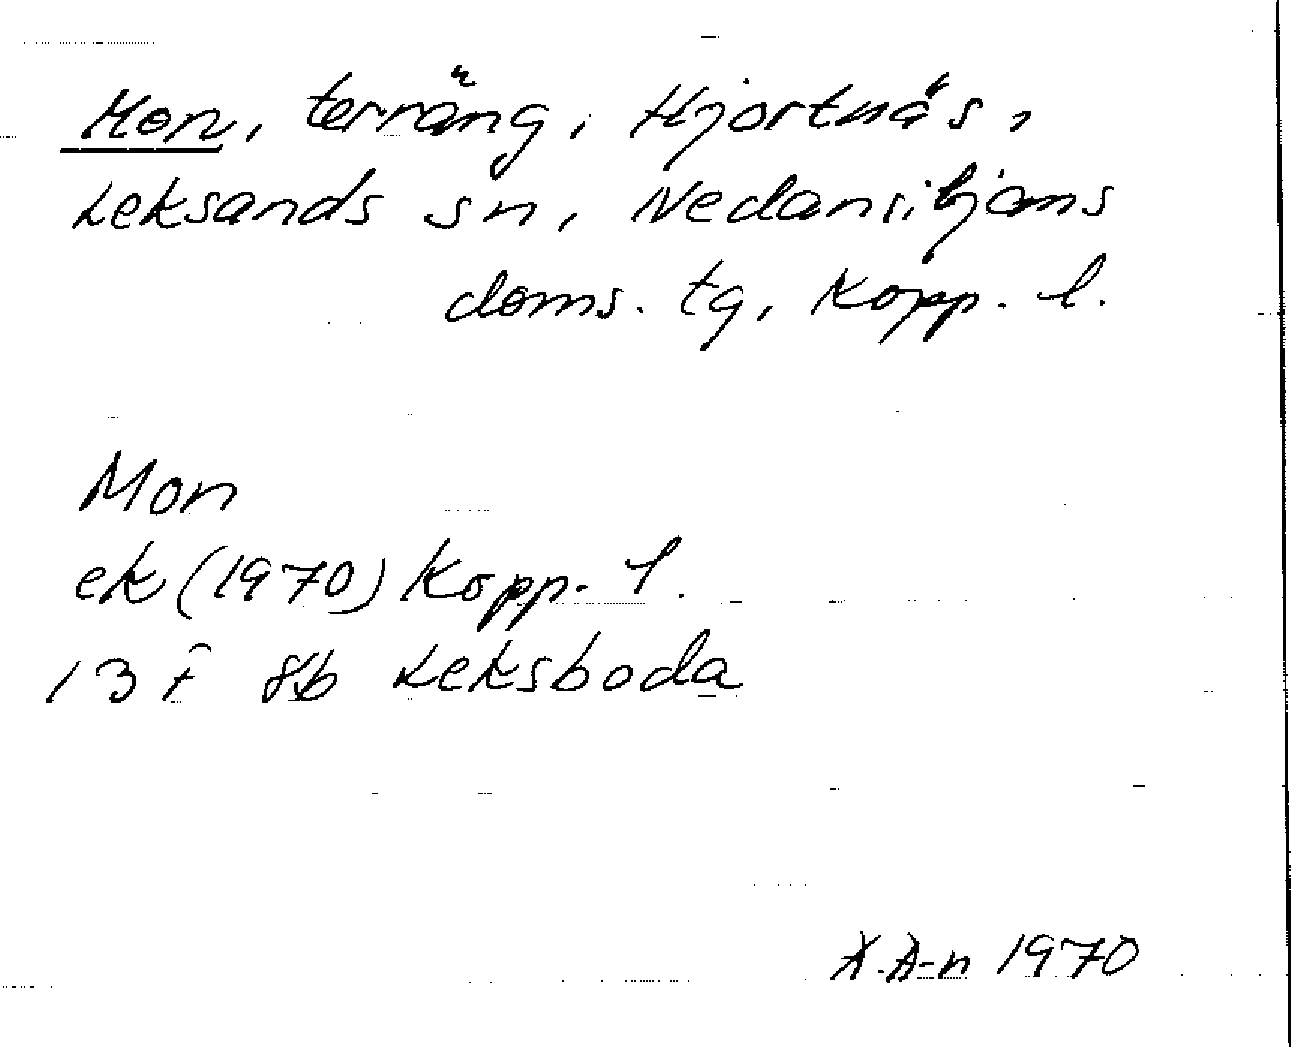 Mon, terräng, Hjortnäs,
Leksands sn, Nedansiljans
doms. tg, Kopp. l.
Mon
ek (1970) Kopp. l.
13 F 8b Leksboda
A-n 1970